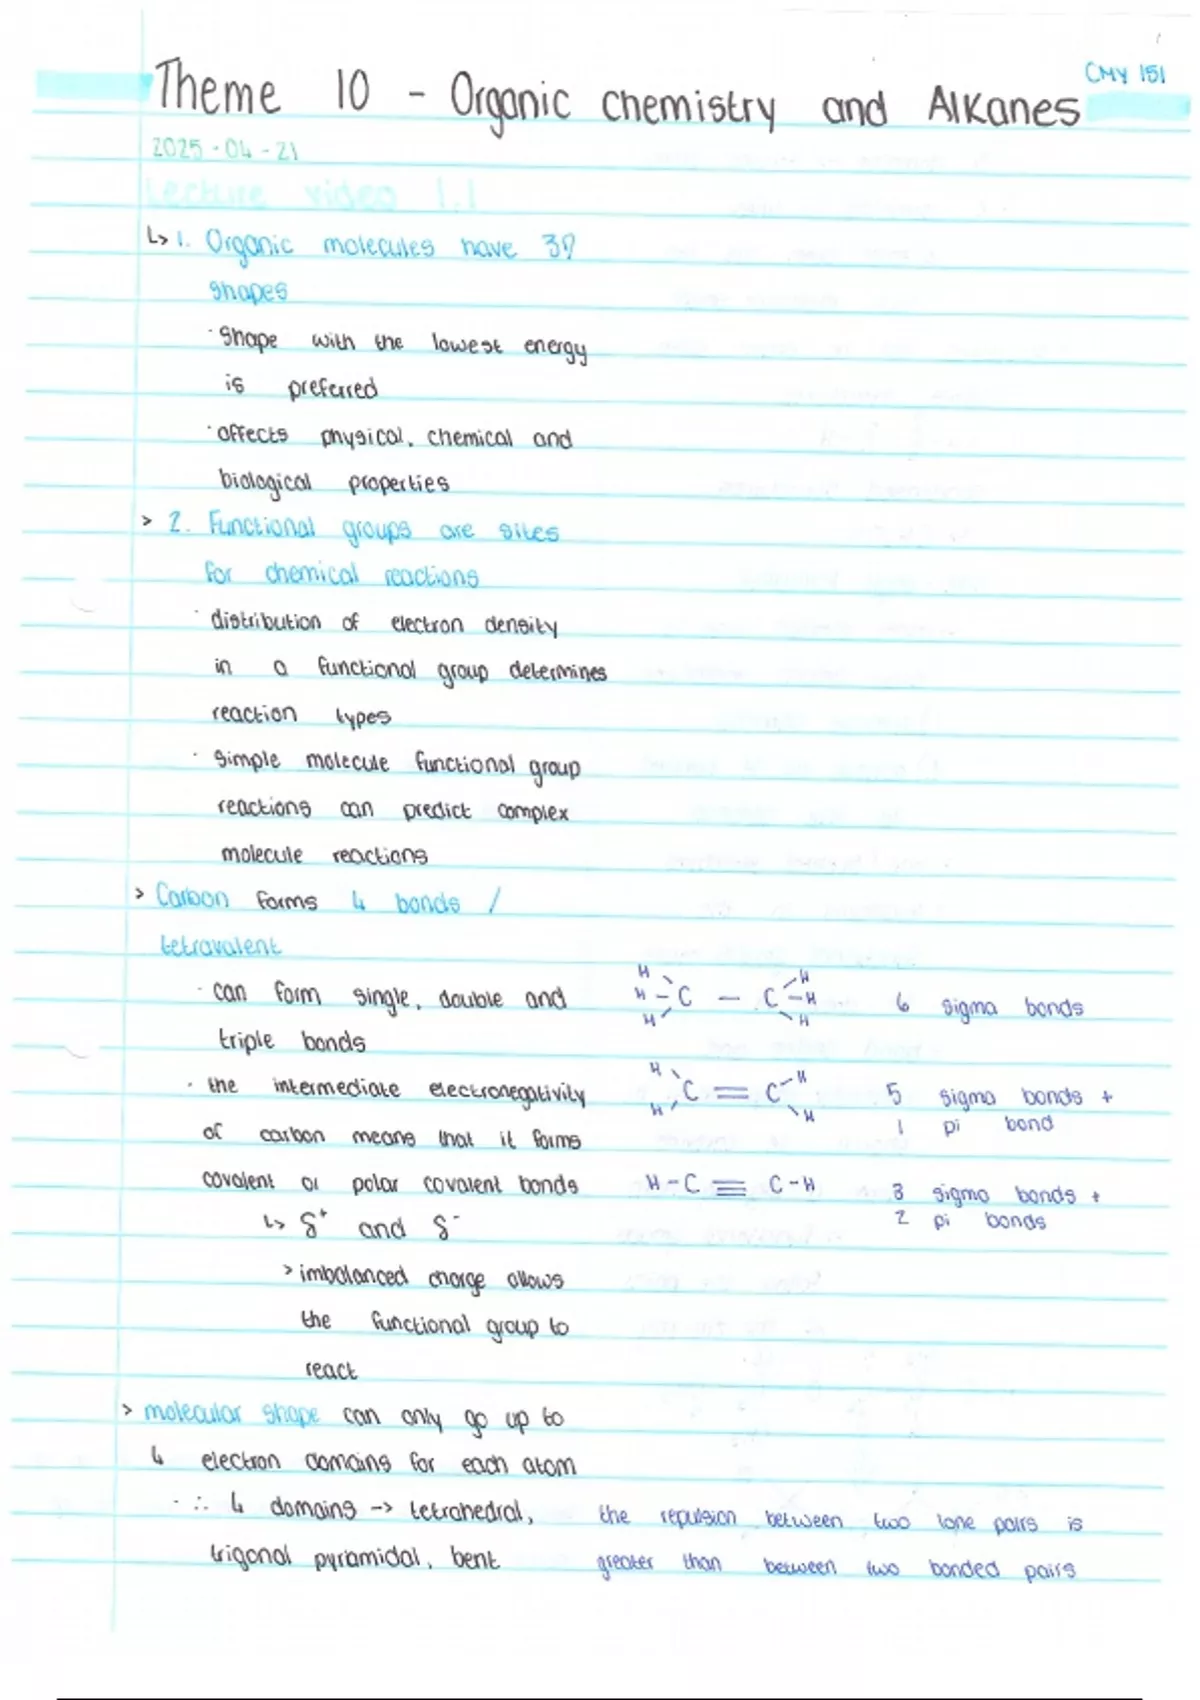 CMY 151
Theme 10 - Organic chemistry and Alkanes
2025-04-21
Lecture video 1.1
↳ 1. Organic molecules have 3D
shapes
· shape with the lowest energy
is preferred
· affects physical, chemical and
biological properties
> 2. Functional groups are sites
for chemical reactions
· distribution of electron density
in a functional group determines
reaction types
· simple molecule functional group
reactions can predict complex
molecule reactions
> Carbon forms 4 bonds /
tetravalent
· can form single, double and
triple bonds
· the intermediate electronegativity
of carbon means that it forms
covalent or polar covalent bonds
↳ δ+ and δ-
> imbalanced charge allows
the functional group to
react
> molecular shape can only go up to
4 electron domains for each atom
· ∴ 4 domains -> tetrahedral,
trigonal pyramidal, bent
H H
H - C - C - H
H H
6 sigma bonds
H H
C = C
H H
5 sigma bonds +
1 pi bond
H - C ≡ C - H
3 sigma bonds +
2 pi bonds
the repulsion between two lone pairs is
greater than between two bonded pairs